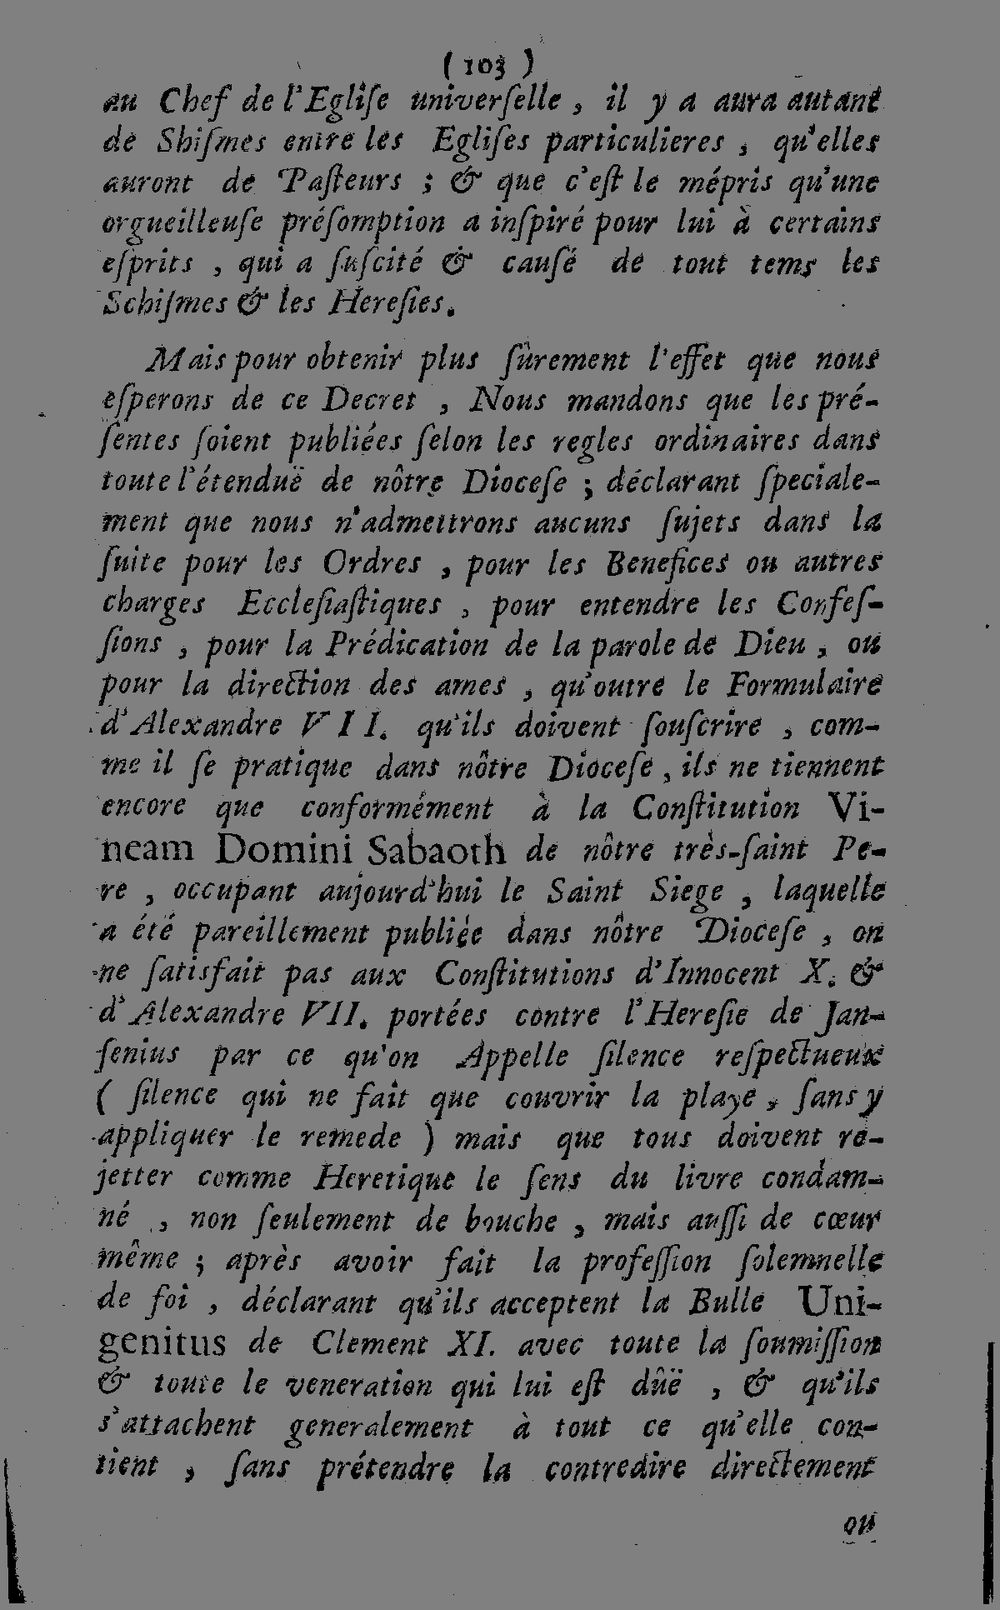 ( 103 )
au Chef de l'Egliſe univerſelle , il y a aura autant
de Shiſmes entre les Egliſes particulieres , qu'elles
auront de Paſteurs ; & que c'eſt le mépris qu'une
orgueilleuſe préſomption a inſpiré pour lui à certains
eſprits , qui a ſuſcité & cauſé de tout tems les
Schiſmes & les Hereſies.
Mais pour obtenir plus ſûrement l'effet que nous
eſperons de ce Decret , Nous mandons que les pré-
ſentes ſoient publiées ſelon les regles ordinaires dans
toute l'étenduë de nôtre Dioceſe ; déclarant ſpeciale-
ment que nous n'admettrons aucuns ſujets dans la
ſuite pour les Ordres , pour les Benefices ou autres
charges Eccleſiaſtiques , pour entendre les Confeſ-
ſions , pour la Prédication de la parole de Dieu , ou
pour la direction des ames , qu'outre le Formulaire
d'Alexandre VII. qu'ils doivent ſouſcrire , com-
me il ſe pratique dans nôtre Dioceſe , ils ne tiennent
encore que conformément à la Conſtitution Vi-
neam Domini Sabaoth de nôtre très-ſaint Pe-
re , occupant aujourd'hui le Saint Siege , laquelle
a été pareillement publiée dans nôtre Dioceſe , on
ne ſatisfait pas aux Conſtitutions d'Innocent X. &
d'Alexandre VII. portées contre l'Hereſie de Jan-
ſenius par ce qu'on Appelle ſilence reſpectueux
( ſilence qui ne fait que couvrir la playe , ſans y
appliquer le remede ) mais que tous doivent re-
jetter comme Heretique le ſens du livre condam-
né , non ſeulement de bouche , mais auſſi de cœur
même ; après avoir fait la profeſſion ſolemnelle
de foi , déclarant qu'ils acceptent la Bulle Uni-
genitus de Clement XI. avec toute la ſoumiſſion
& toute le veneration qui lui eſt dûë , & qu'ils
s'attachent generalement à tout ce qu'elle con-
tient , ſans prétendre la contredire directement
ou